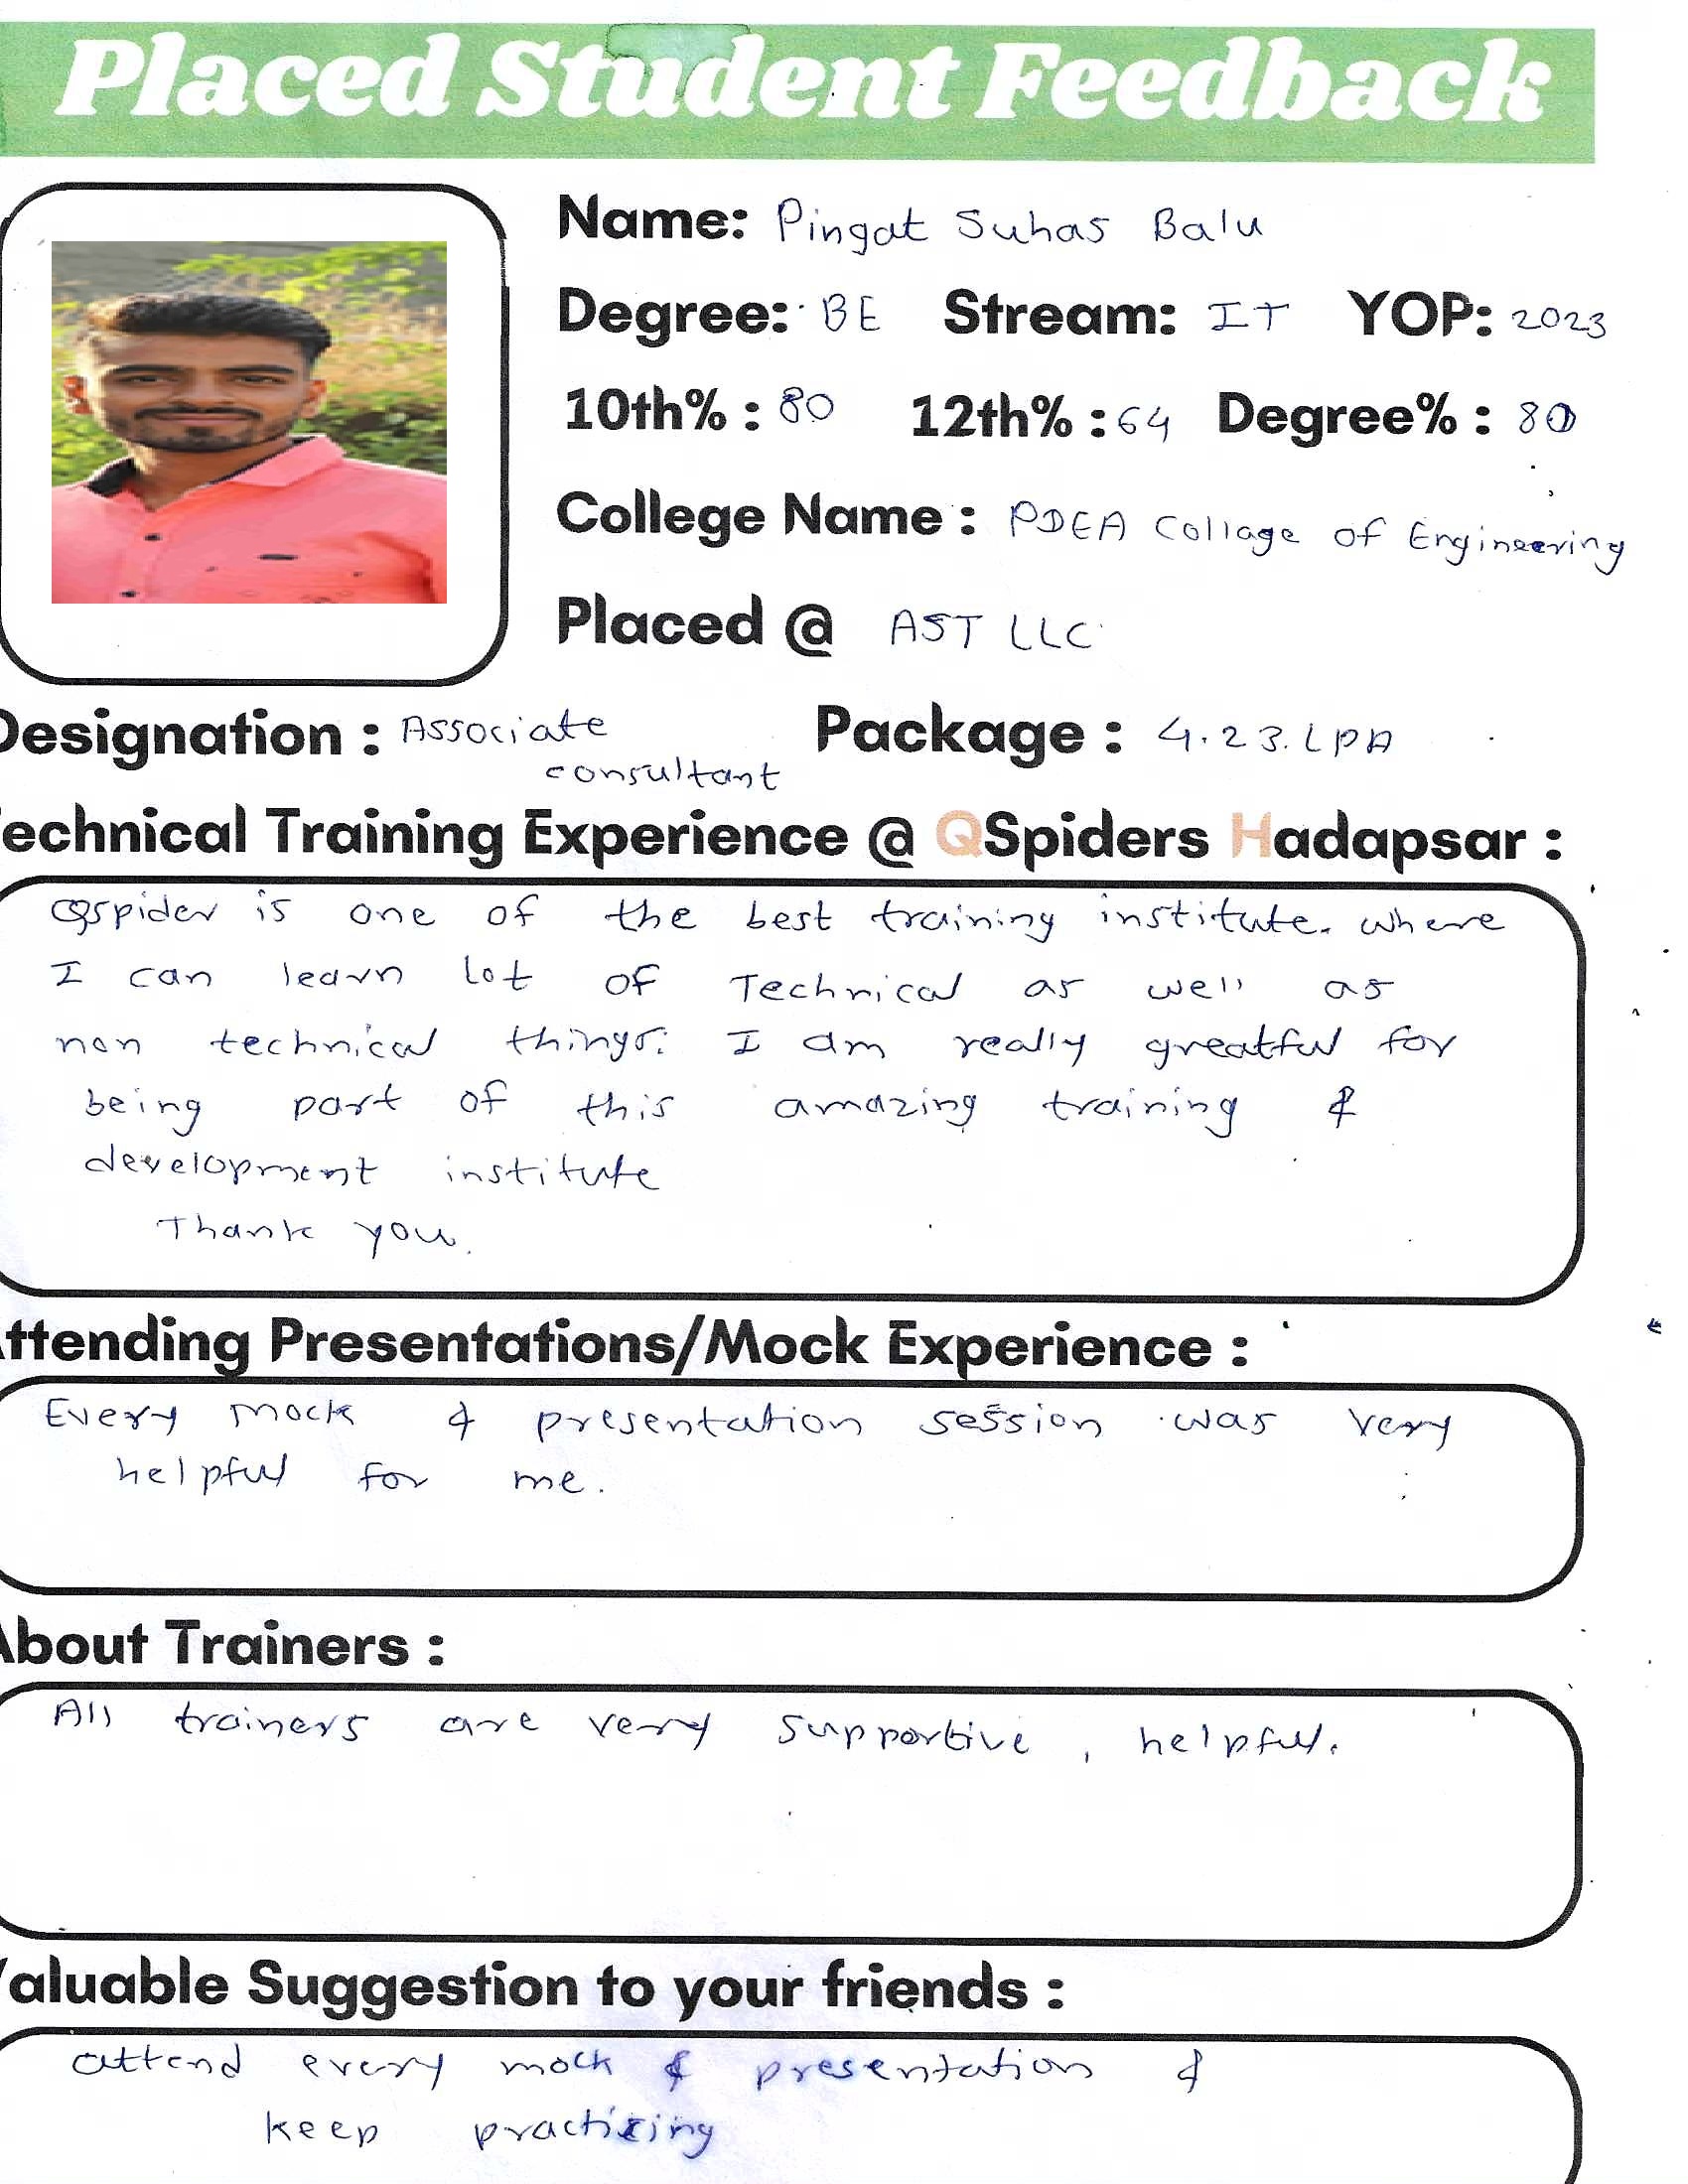 Placed Student Feedback
Name: Pingat Suhas Balu
Degree: BE Stream: IT YOP: 2023
10th% : 80 12th% : 64 Degree% : 80
College Name : PDEA Collage of Engineering
Placed @ AST LLC
Designation : Associate Package : 4.23.LPA
consultant
echnical Training Experience @ QSpiders Hadapsar :
Qspider is one of the best training institute. where
I can learn lot of Technical as well as
non technical things. I am really greatful for
being part of this amazing training &
development institute
Thank you.
ttending Presentations/Mock Experience :
Every mock & presentation session was very
helpful for me.
About Trainers :
All trainers are very supportive, helpful.
aluable Suggestion to your friends :
attend every mock & presentation &
keep practicing